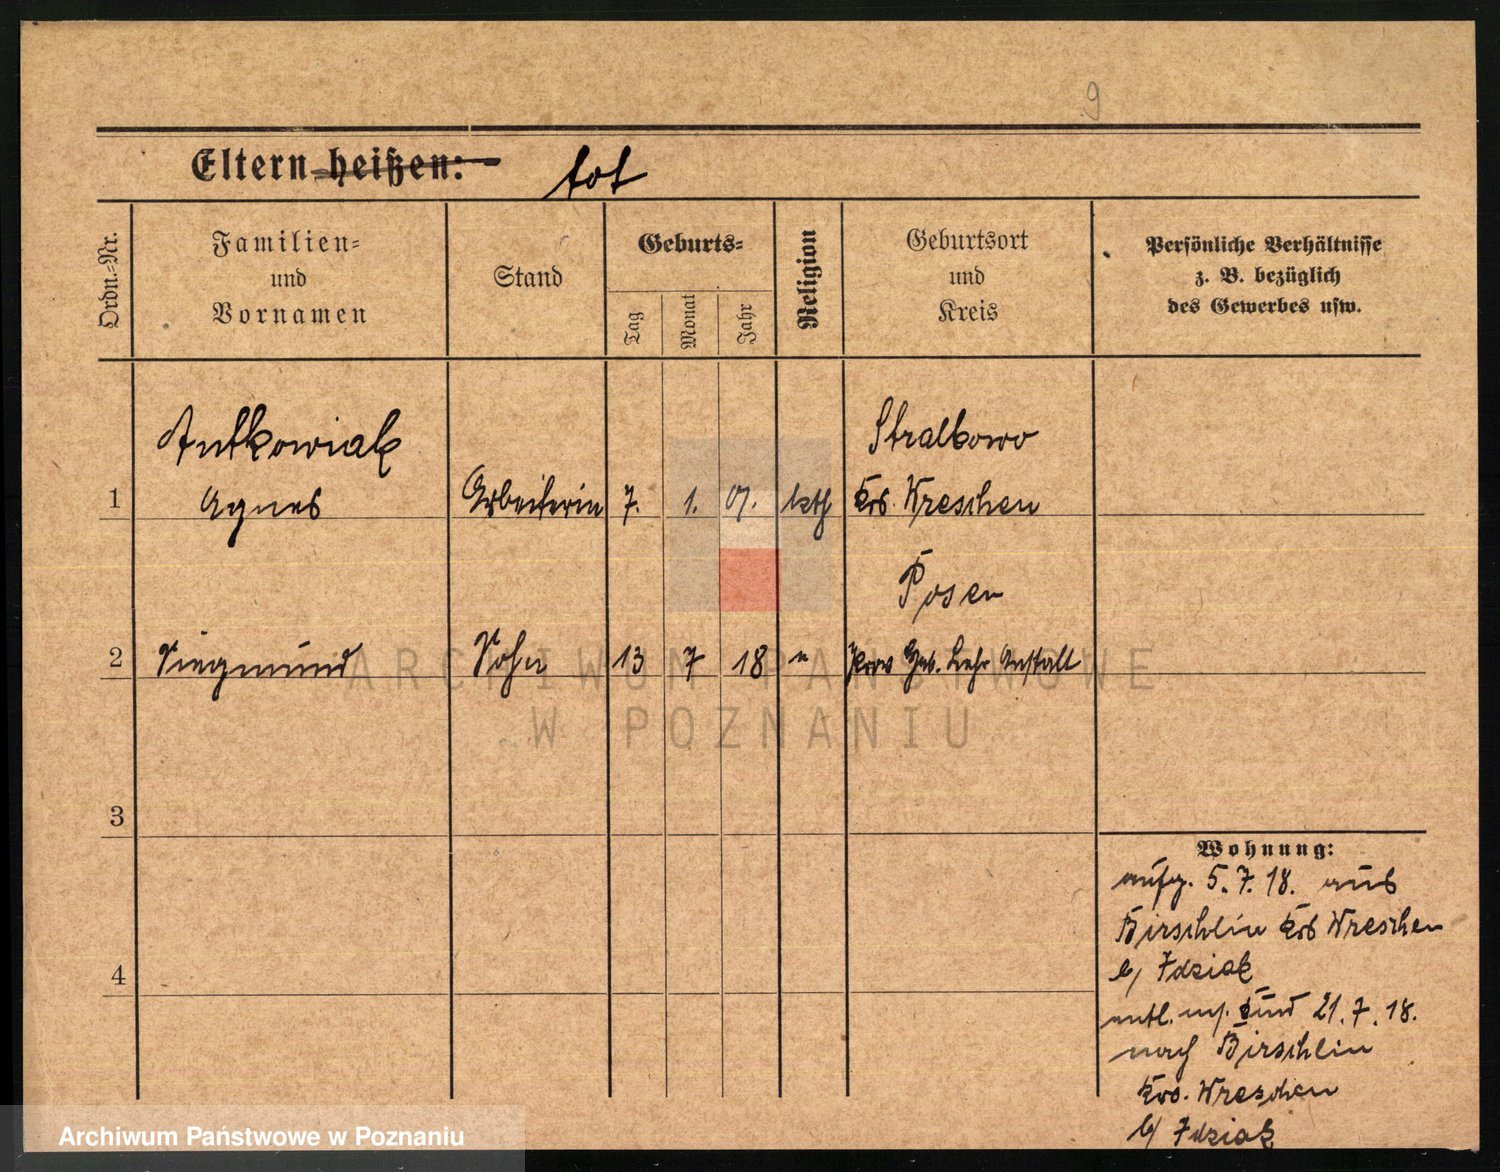 9
Eltern heißen: tot
Ordn.-Nr.
Familien-
und
Vornamen
Stand
Geburts-
Tag
Monat
Jahr
Religion
Geburtsort
und
Kreis
Persönliche Verhältnisse
z. B. bezüglich
des Gewerbes usw.
Antkowiak
Stralkowo
1 Agnes Arbeiterin 7. 1. 01. kth Krs. Wreschen
Posen
2 Siegmund Sohn 13 7 18 " Prov Geb. Lehr Anstalt
ARCHIWUM PAŃSTWOWE
W POZNANIU
3
4
Wohnung:
aufg. 5.7.18. aus
Birschlin Krs Wreschen
b/ Idziak
entl. m/. Kind 21.7.18.
nach Birschlin
Krs. Wreschen
b/ Idziak
Archiwum Państwowe w Poznaniu